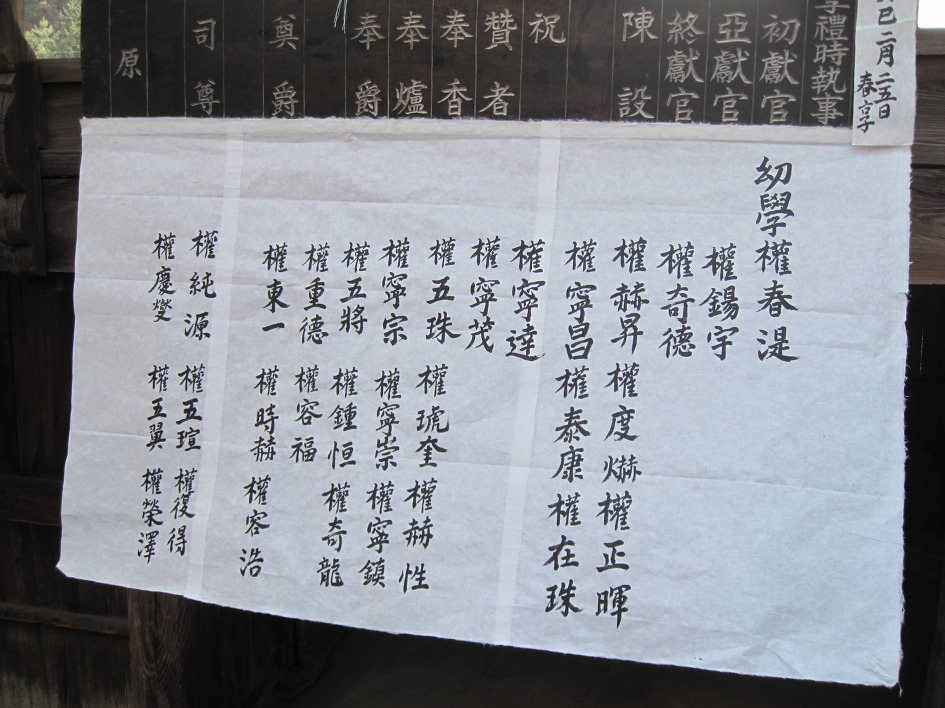 巳二月二五日
春享
享禮時執事
初獻官
亞獻官
終獻官
陳設
祝
贊者
奉香
奉爐
奉爵
奠爵
司尊
原
幼學權春湜
權錫宇
權奇德
權赫昇 權度爀 權正暉
權寧昌 權泰康 權在珠
權寧達
權寧茂
權五珠 權琥奎 權赫性
權寧宗 權寧崇 權寧鎮
權五將 權鍾恒 權奇龍
權重德 權容福
權東一 權時赫 權容浩
權純源 權五瑄 權復得
權慶燮 權五翼 權榮澤